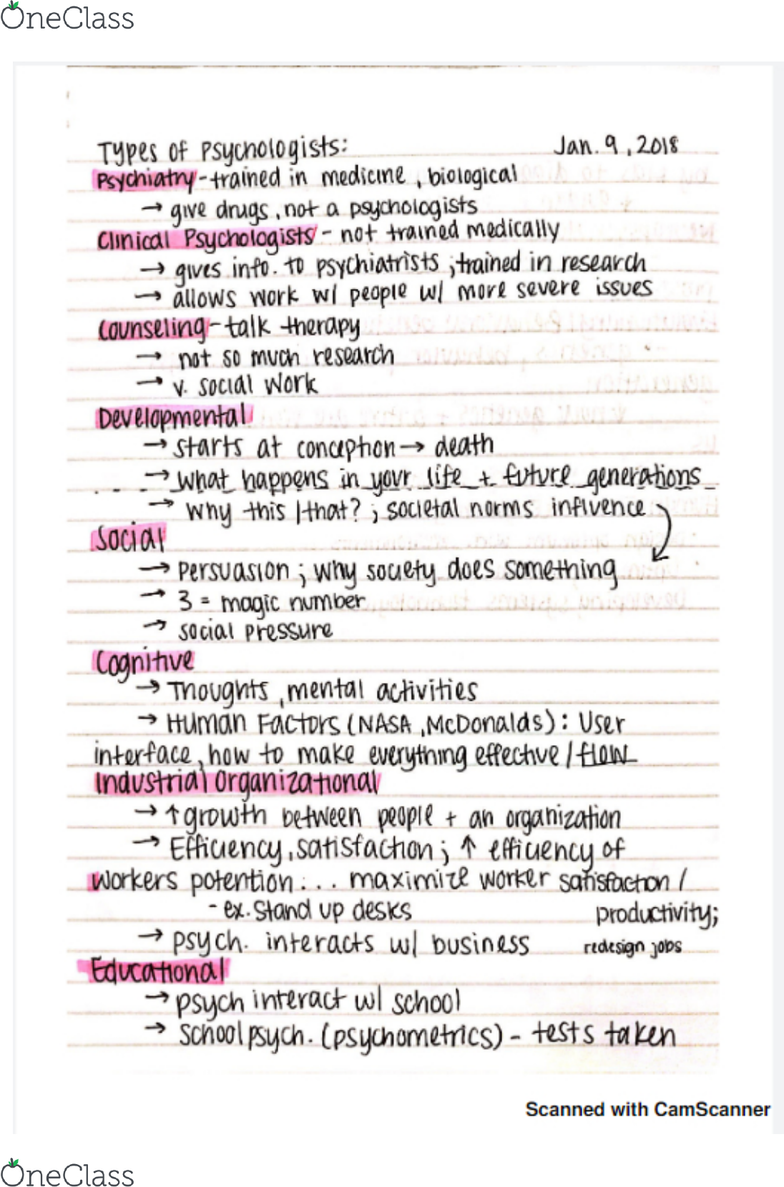 OneClass
Types of Psychologists: Jan. 9, 2018
Psychiatry - trained in medicine, biological
→ give drugs, not a psychologists
Clinical Psychologists - not trained medically
→ gives info. to psychiatrists; trained in research
→ allows work w/ people w/ more severe issues
Counseling - talk therapy
→ not so much research
→ v. social work
Developmental
→ starts at conception → death
→ what happens in your life + future generations
→ why this / that?; societal norms influence
Social
→ Persuasion; why society does something
→ 3 = magic number
→ social pressure
Cognitive
→ Thoughts, mental activities
→ Human Factors (NASA, McDonalds): User
interface, how to make everything effective / flow
Industrial Organizational
→ ↑ growth between people + an organization
→ Efficiency, satisfaction; ↑ efficency of
workers potention: ... maximize worker satisfaction /
- ex. Stand up desks productivity;
→ psych. interacts w/ business redesign jobs
Educational
→ psych interact w/ school
→ School psych. (psychometrics) - tests taken
Scanned with CamScanner
OneClass